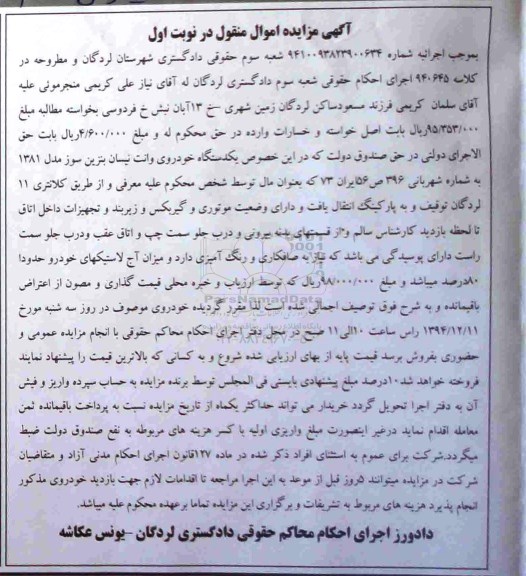 آگهی مزایده اموال منقول در نوبت اول
بموجب اجرائیه شماره ۹۴۱۰۰۹۳۸۲۳۹۰۰۶۳۴ شعبه سوم حقوقی دادگستری شهرستان لردگان و مطروحه در
کلاسه ۹۴۰۶۴۵ اجرای احکام حقوقی شعبه سوم دادگستری لردگان له آقای نیاز علی کریمی منجرموئی علیه
آقای سلمان کریمی فرزند مسعودساکن لردگان زمین شهری –خ ۱۳آبان نبش خ فردوسی بخواسته مطالبه مبلغ
۹۵/۳۵۳/۰۰۰ریال بابت اصل خواسته و خسارات وارده در حق محکوم له و مبلغ ۴/۶۰۰/۰۰۰ریال بابت حق
الاجرای دولتی در حق صندوق دولت که در این خصوص یکدستگاه خودروی وانت نیسان بنزین سوز مدل ۱۳۸۱
به شماره شهربانی ۳۹۶ ص۵۶ایران ۷۳ که بعنوان مال توسط شخص محکوم علیه معرفی و از طریق کلانتری ۱۱
لردگان توقیف و به پارکینگ انتقال یافت و دارای وضعیت موتوری و گیربکس و زیربند و تجهیزات داخل اتاق
تا لحظه بازدید کارشناس سالم و از قسمتهای بدنه بیرونی و درب جلو سمت چپ و اتاق عقب ودرب جلو سمت
راست دارای پوسیدگی می باشد که نیاز به صافکاری و رنگ آمیزی دارد و میزان آج لاستیکهای خودرو حدودا
۸۰درصد میباشد و مبلغ ۹۸/۰۰۰/۰۰۰ریال که توسط ارزیاب و خبره محلی قیمت گذاری و مصون از اعتراض
باقیمانده و به شرح فوق توصیف اجمالی شده است لذا مقرر گردیده خودروی موصوف در روز سه شنبه مورخ
۱۳۹۴/۱۲/۱۱ راس ساعت ۱۰الی۱۱ صبح در محل دفتر اجرای احکام محاکم حقوقی با انجام مزایده عمومی و
حضوری بفروش برسد قیمت پایه از بهای ارزیابی شده شروع و به کسانی که بالاترین قیمت را پیشنهاد نمایند
فروخته خواهد شد۱۰درصد مبلغ پیشنهادی بایستی فی المجلس توسط برنده مزایده به حساب سپرده واریز و فیش
آن به دفتر اجرا تحویل گردد خریدار می تواند حداکثر یکماه از تاریخ مزایده نسبت به پرداخت باقیمانده ثمن
معامله اقدام نماید درغیر اینصورت مبلغ واریزی اولیه با کسر هزینه های مربوطه به نفع صندوق دولت ضبط
میگردد.شرکت برای عموم به استثنای افراد ذکر شده در ماده ۱۲۷قانون اجرای احکام مدنی آزاد و متقاضیان
شرکت در مزایده میتوانند ۵روز قبل از موعد به این اجرا مراجعه تا اقدامات لازم جهت بازدید خودروی مذکور
انجام پذیرد هزینه های مربوط به تشریفات و برگزاری این مزایده تماما برعهده محکوم علیه میباشد.
دادورز اجرای احکام محاکم حقوقی دادگستری لردگان –یونس عکاشه
ParsNamadData